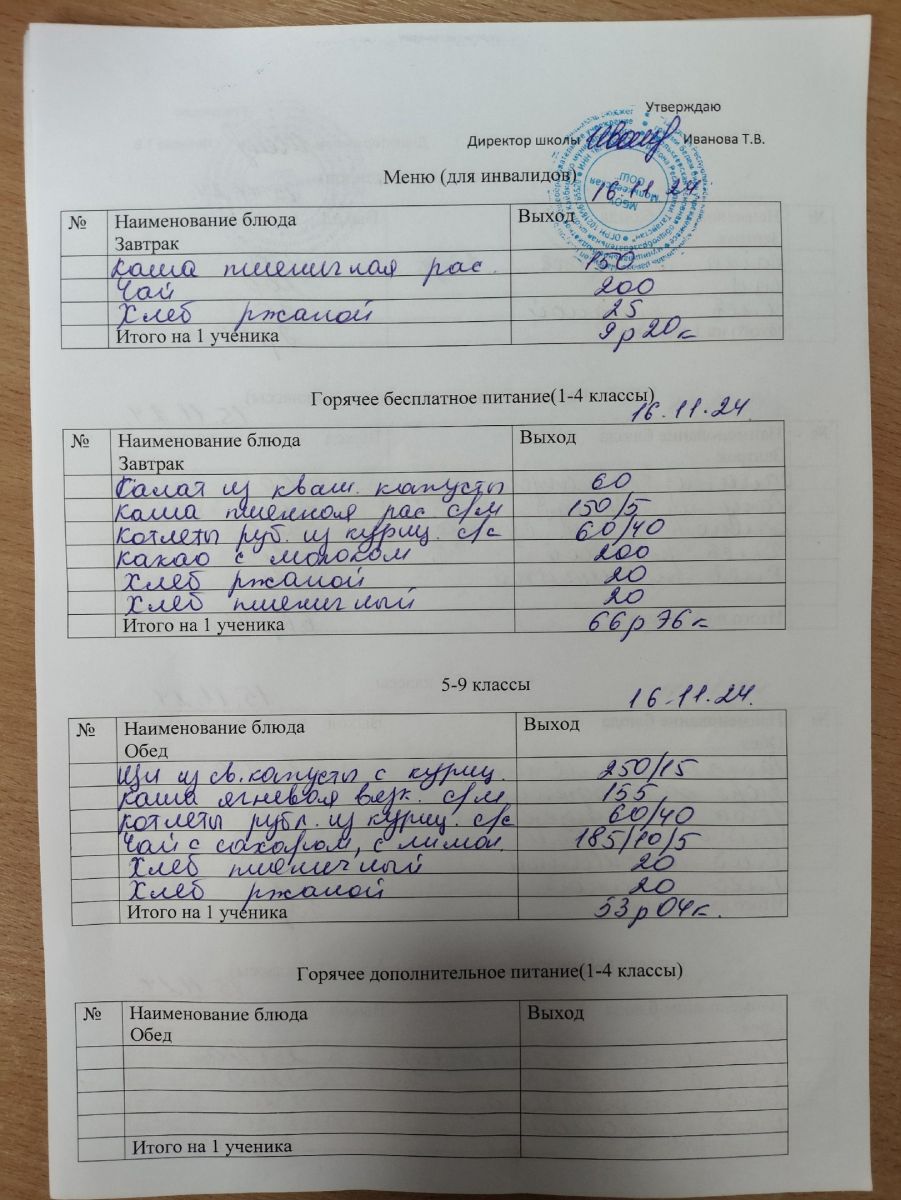 Утверждаю
Директор школы Иванова Т.В.
Меню (для инвалидов) 16.11.24
№ Наименование блюда Выход
Завтрак
Каша пшеничная рас. 150
Чай 200
Хлеб ржаной 25
Итого на 1 ученика 9р20к
Горячее бесплатное питание(1-4 классы)
16.11.24
№ Наименование блюда Выход
Завтрак
Салат из кваш. капусты 60
Каша пшенная рас с/м 150/5
Котлеты руб. из куриц. с/с 60/40
Какао с молоком 200
Хлеб ржаной 20
Хлеб пшеничный 20
Итого на 1 ученика 66р76к
5-9 классы
16.11.24.
№ Наименование блюда Выход
Обед
Щи из св. капусты с куриц. 250/15
Каша ягневая вязк. с/м 155
Котлеты рубл. из куриц. с/с 60/40
Чай с сахаром, с лимон. 185/10/5
Хлеб пшеничный 20
Хлеб ржаной 20
Итого на 1 ученика 53р04к.
Горячее дополнительное питание(1-4 классы)
№ Наименование блюда Выход
Обед
Итого на 1 ученика